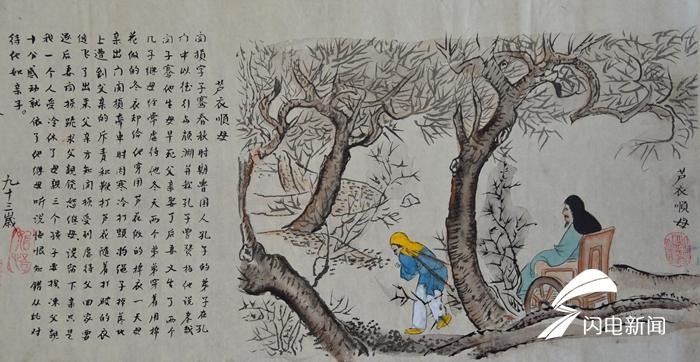 芦衣顺母
闵损字子骞春秋时期鲁国人孔子的弟子在孔
门中以德行与颜渊并称孔子曾赞扬他说孝哉
闵子骞他生母早死父亲娶了后妻又生了两个
儿子继母经常虐待他冬天两个弟弟穿着用棉
花做的冬衣却给他穿用芦花做的棉衣一天父
亲出门闵损牵车时因寒冷打颤将绳子掉落地
上遭到父亲的斥责和鞭打芦花随着打破的衣
缝飞了出来父亲方知闵损受到虐待父回家要
返后妻闵损跪求父亲饶恕继母说留下来只是
我一个人受冷休了母亲三个孩子挨冻父親
十分感动就依了他继母听说悔恨知错从此对
待他如亲子。
九十三岁
芦衣顺母
闪电新闻